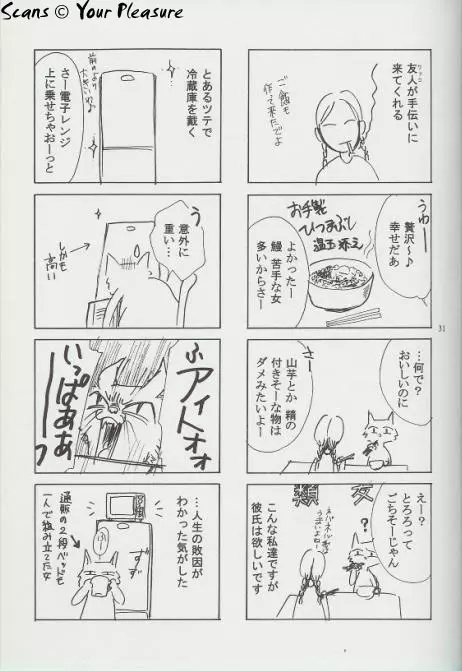 Scans © Your Pleasure
友人が手伝いに
来てくれる
ご飯も
作って来たでよ
うわー
贅沢〜♪
幸せだあ
お手製
ひつまぶし
温玉添え
よかったー
鰻苦手な女
多いからさー
…何で?
おいしいのに
さー
山芋とか 精の
付きそーな物は
ダメみたいよー
えー?
とろろって
ごちそーじゃん
?
ネバネバ
うまいよねー
類友
こんな私達ですが
彼氏は欲しいです
31
とあるツテで
冷蔵庫を戴く
前のより
大きいわぁ
さー電子レンジ
上に乗せちゃおーっと
うっ
意外に
重い…
しかも
高い
ふアイトォォ
いっぱああーつ
…人生の敗因が
わかった気がした
ふー
ずず
通販の2段ベッドも
一人で組み立てた女